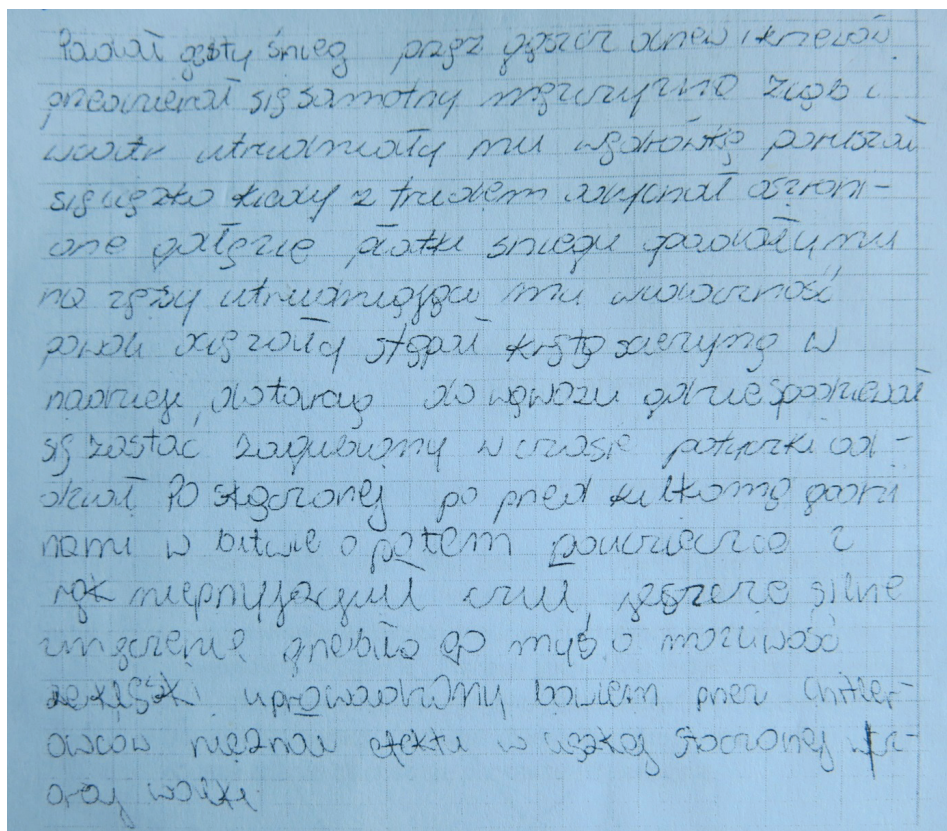 Padał gęsty śnieg przez gąszcz drzew i krzewów
przedzierał się samotny mężczyzna ziąb i
wiatr utrudniały mu wędrówkę poruszał
się ciężko kiedy z trudem odginał oszroni-
one gałęzie płatki śniegu spadały mu
na rzęsy utrudniając mu widoczność
powoli stąpał krętą w
nadziei, dotarcia do wąwozu gdzie spodziewał
się zastać zagubiony w czasie potyczki od-
dział Po stoczonej po przed kilkoma godzi
nami w bitwie o potem ucieczce z
rąk nieprzyjaciół czuł jeszcze silne
zmęczenie gnębiła go myśl o możliwość
klęski uprowadzony bowiem przez hitler-
owców nieznał efektu ciężkiej stoczonej wcz-
oraj walki